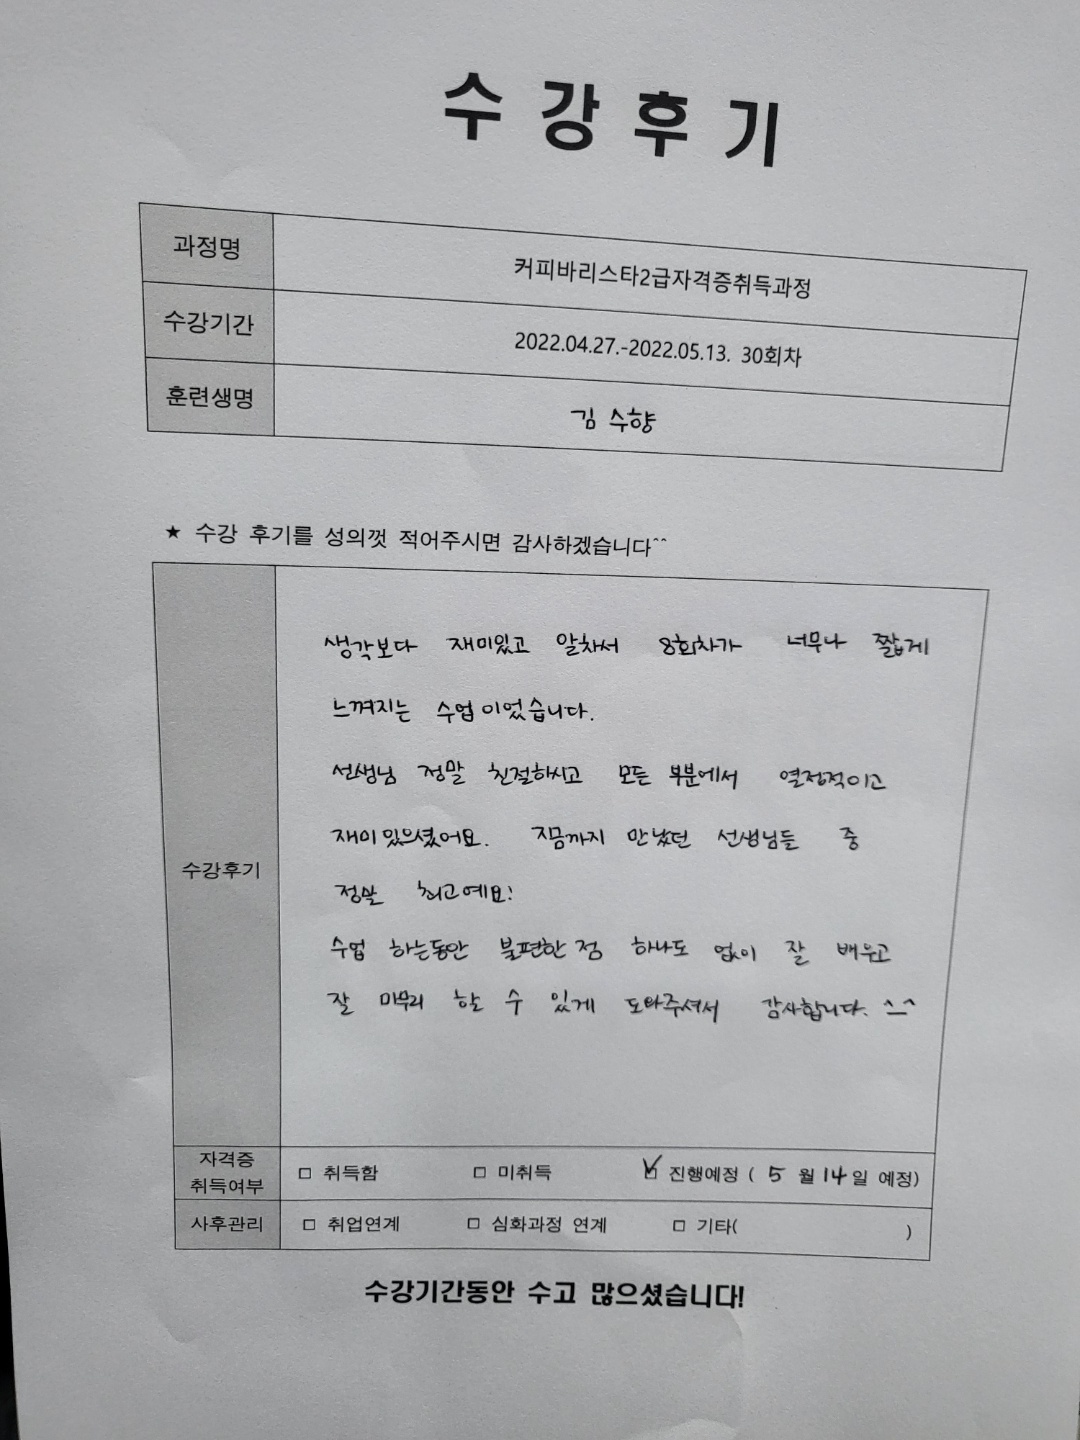 수 강 후 기
과정명
커피바리스타2급자격증취득과정
수강기간
2022.04.27.-2022.05.13. 30회차
훈련생명
김 수향
★ 수강 후기를 성의껏 적어주시면 감사하겠습니다^^
수강후기
생각보다 재미있고 알차서 8회차가 너무나 짧게
느껴지는 수업이었습니다.
선생님 정말 친절하시고 모든 부분에서 열정적이고
재미있으셨어요. 지금까지 만났던 선생님들 중
정말 최고예요!
수업 하는동안 불편한 점 하나도 없이 잘 배우고
잘 마무리 할 수 있게 도와주셔서 감사합니다. ^_^
자격증
취득여부
□ 취득함 □ 미취득 ☑ 진행예정 ( 5 월 14일 예정)
사후관리
□ 취업연계 □ 심화과정 연계 □ 기타( )
수강기간동안 수고 많으셨습니다!